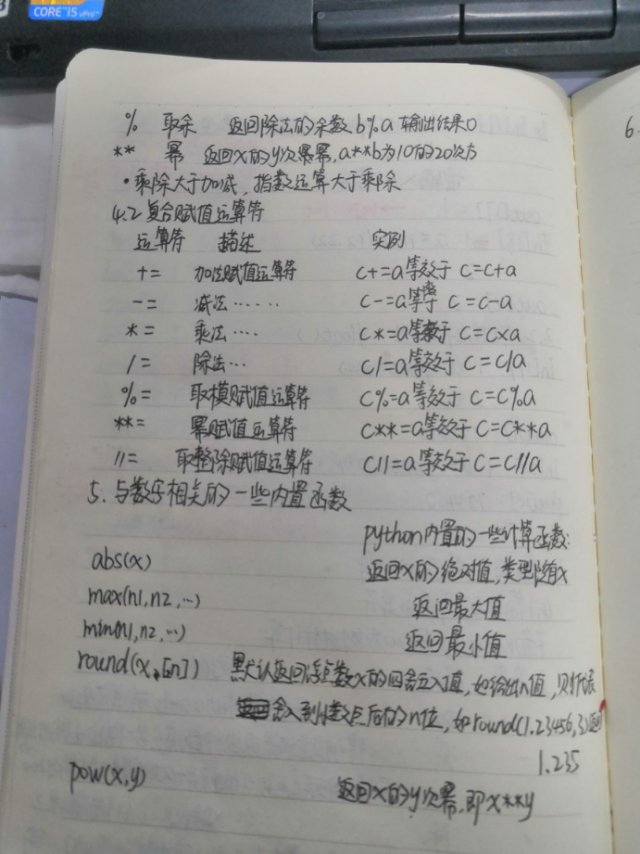 CORE i5 vPro
% 取余 返回除法的余数 b%a 输出结果0
** 幂 返回x的y次幂幂,a**b为10的20次方
·乘除大于加减,指数运算大于乘除
4.2 复合赋值运算符
运算符 描述 实例
+= 加法赋值运算符 c+=a等效于 c=c+a
-= 减法…… c-=a等效 c=c-a
*= 乘法…. c*=a等效于 c=c×a
/= 除法… c/=a等效于 c=c/a
%= 取模赋值运算符 c%=a等效于 c=c%a
**= 幂赋值运算符 c**=a等效于 c=c**a
//= 取整除赋值运算符 c//=a等效于 c=c//a
5. 与数字相关的一些内置函数
python内置的一些计算函数:
abs(x) 返回x的绝对值,类型随x
max(n1,n2,…) 返回最大值
min(n1,n2,…) 返回最小值
round(x,[n]) 默认返回浮点数x的四舍五入值,如给出n值,则代表
舍入到小数点后的n位,如round(1.23456,3)返回
1.235
pow(x,y) 返回x的y次幂,即x**y
6.